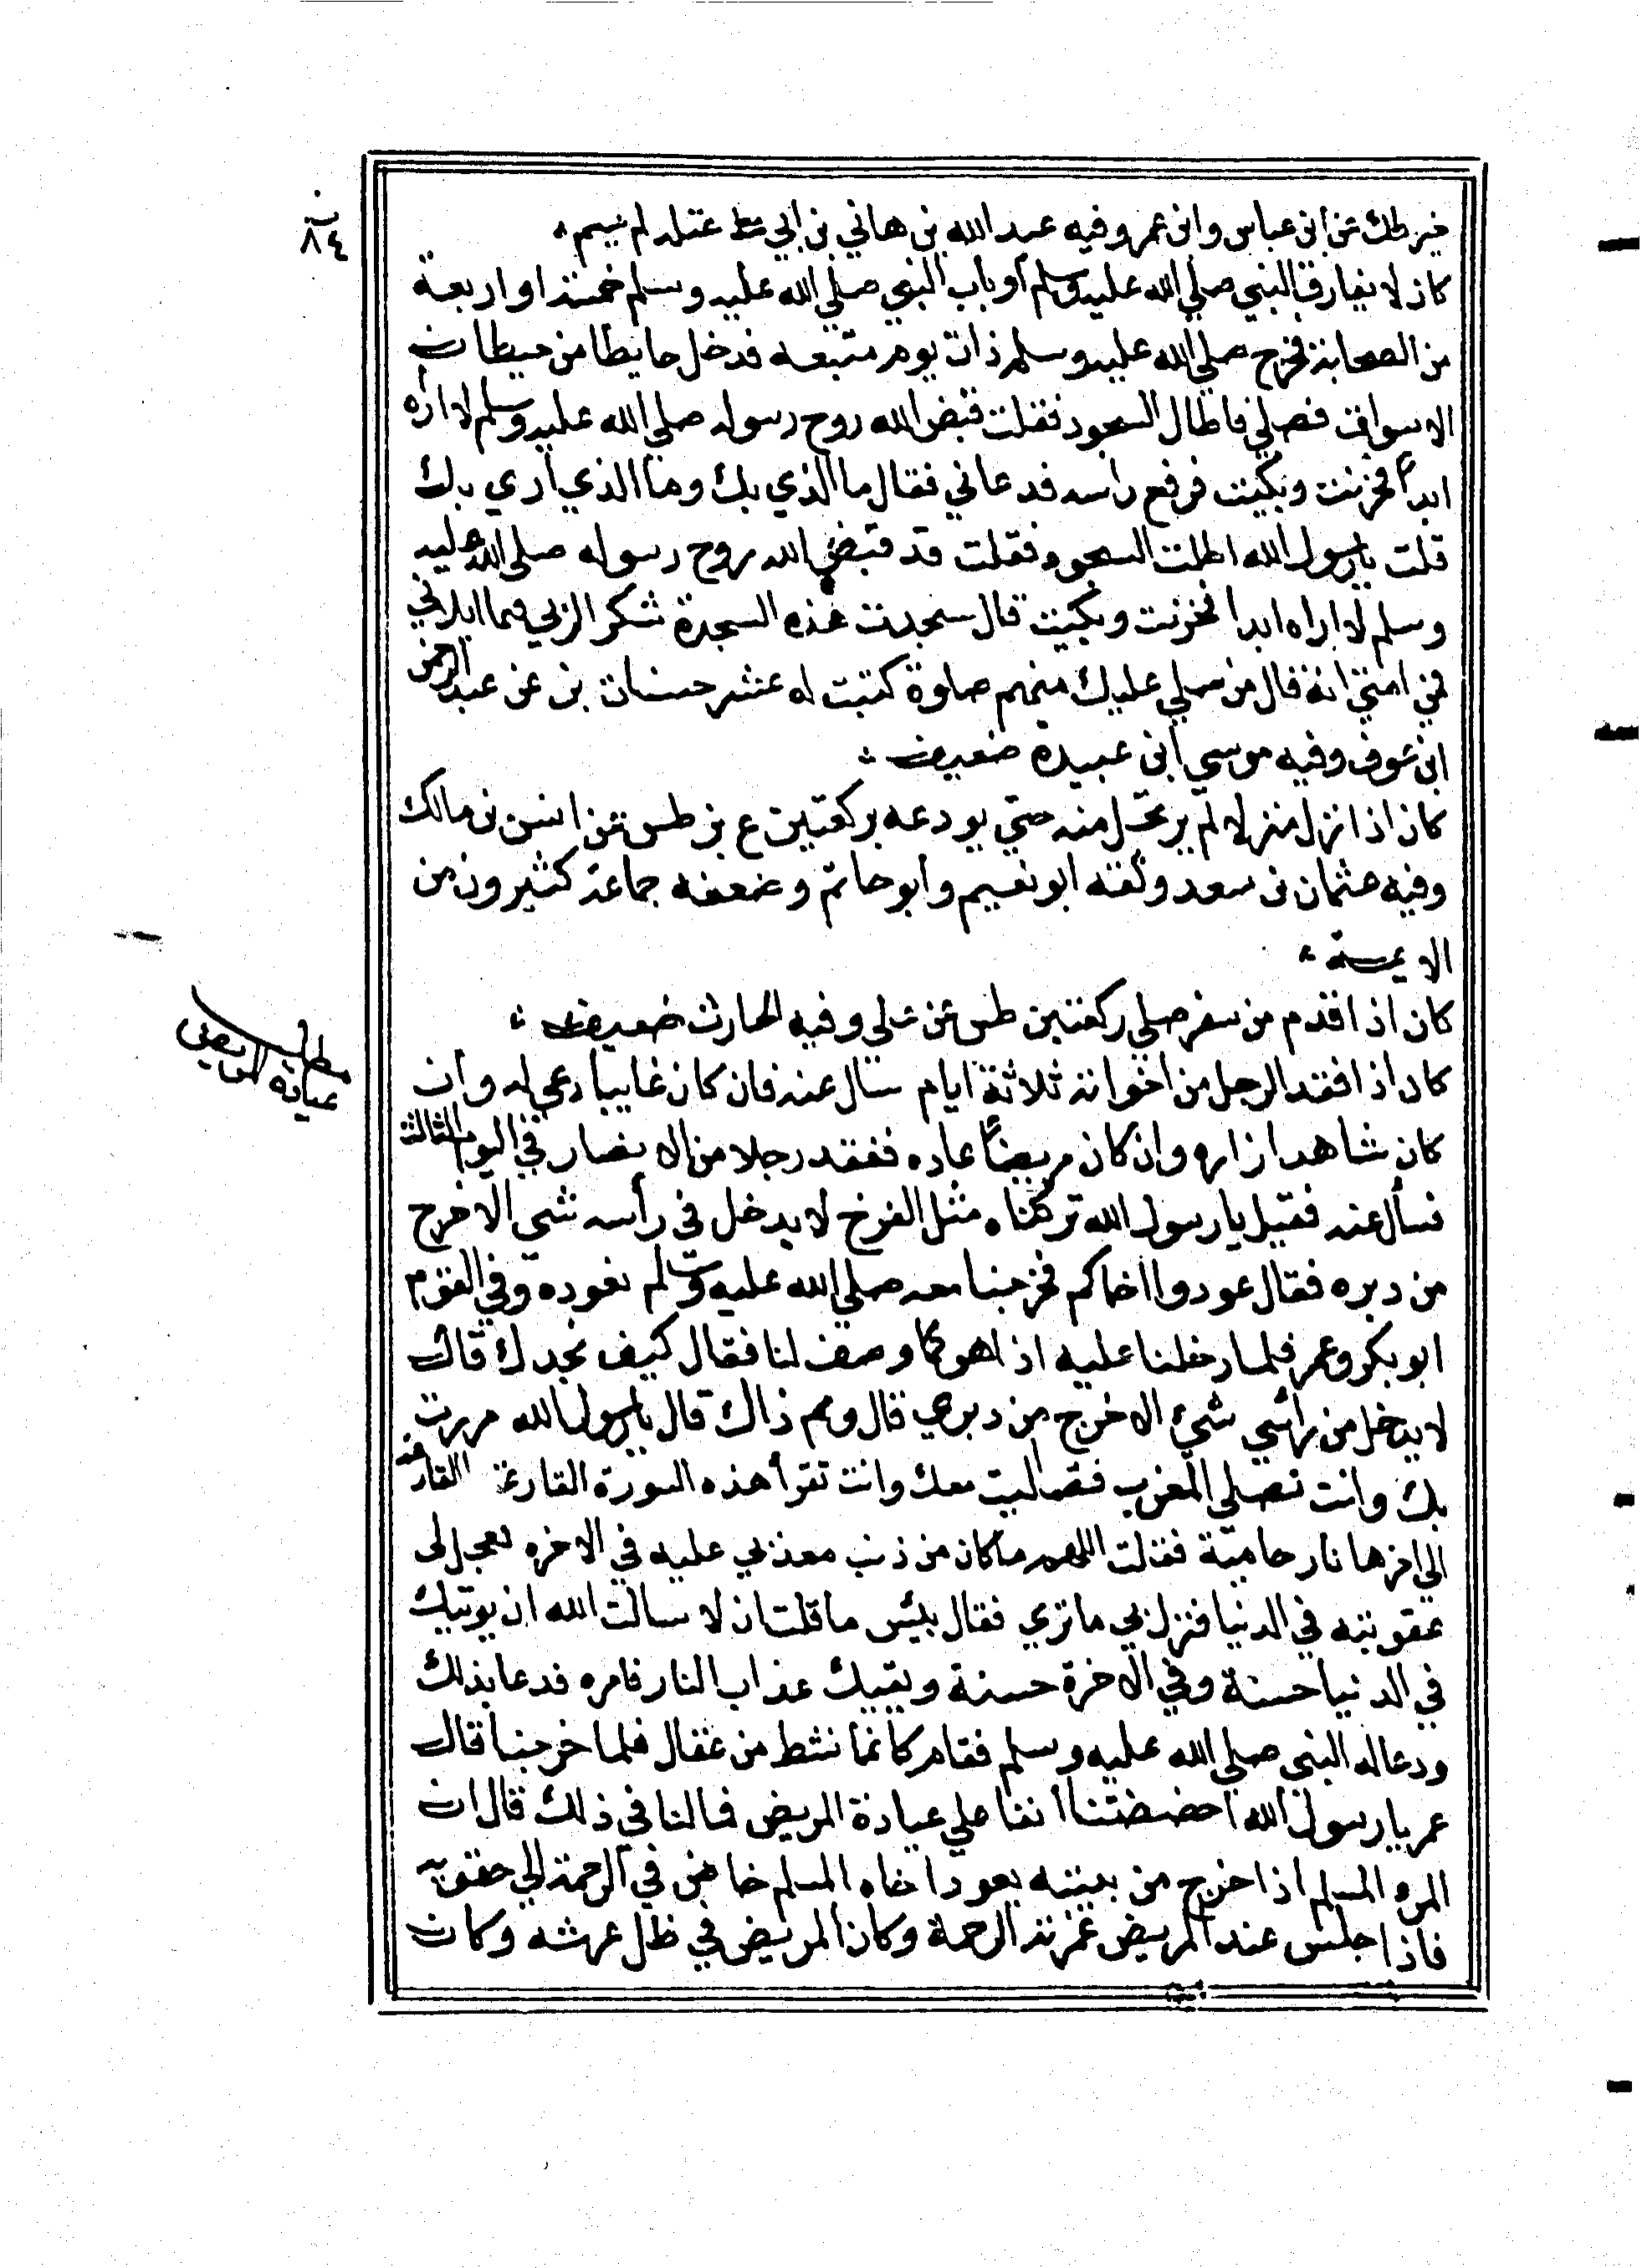 ٨٤
خير طك عن ابن عباس وابن عمر وفيه عبد الله بن هاني بن ابي عتله لم يسم
كان لا يفارق النبي صلي الله عليه وسلم أو باب النبي صلي الله عليه وسلم خمسة او اربعة
من الصحابة فخرج صلي الله عليه وسلم ذات يوم متبعه فدخل حايطا من حيطان
الاسواف فصلي فاطال السجود فقلت قبض الله روح رسوله صلي الله عليه وسلم لا اراه
ابدا فحزنت وبكيت فرفع راسه فدعاني فقال ما الذي بك وما الذي اري بك
قلت يا رسول الله اطلت السجود فقلت قد قبض الله روح رسوله صلي الله عليه
وسلم لا اراه ابدا فحزنت وبكيت قال سجدت هذه السجدة شكرا لربي فيما ابلاني
في امتي انه قال من صلي عليك منهم صلوة كتبت له عشر حسنات بز عن عبد الرحمن
ابن عوف وفيه موسي ابن عبيدة ضعيف
كان اذا نزل منزلا لم يرتحل منه حتي يودعه بركعتين ع بز طس عن انس بن مالك
وفيه عثمان بن سعد وثقه ابو نعيم وأبو حاتم وضعفه جماعة كثيرون من
الايمة
كان اذا قدم من سفر صلي ركعتين طس عن علي وفيه الحارث ضعيف
مطلب عيادة المريض
كان اذا فقد الرجل من اخوانه ثلاثة ايام سال عنه فان كان غايبا دعي له وان
كان شاهدا زاره وان كان مريضا عاده ففقد رجلا من الانصار في اليوم الثالث
فسأل عنه فقيل يا رسول الله تركناه مثل الفرخ لا يدخل في رأسه شي الا خرج
من دبره فقال عودوا اخاكم فخرجنا معه صلي الله عليه وسلم نعوده وفي القوم
ابو بكر وعمر فلما دخلنا عليه اذا هو كما وصف لنا فقال كيف تجدك قال
لا يدخل من رأسي شيء الا خرج من دبري قال ومم ذاك قال يا رسول الله مررت
بك وانت تصلي المغرب فصليت معك وانت تقرأ هذه السورة القارعة ما القارعة
الي اخرها نار حامية فقلت اللهم ما كان من ذنب معذبي عليه في الاخره فعجل لي
عقوبته في الدنيا فنزل بي ما تري فقال بئس ما قلت ان لا سالت الله ان يوتيك
في الدنيا حسنة وفي الاخرة حسنة ويقيك عذاب النار فامره فدعا بذلك
ودعا له النبي صلي الله عليه وسلم فقام كانما نشط من عقال فلما خرجنا قال
عمر يا رسول الله احضضتنا انفا علي عيادة المريض فما لنا في ذلك قال ان
المرء المسلم اذا خرج من بيته يعود اخاه المسلم خاض في الرحمة الي حقويه
فاذا جلس عند المريض غمرته الرحمة وكان المريض في ظل عرشه وكان